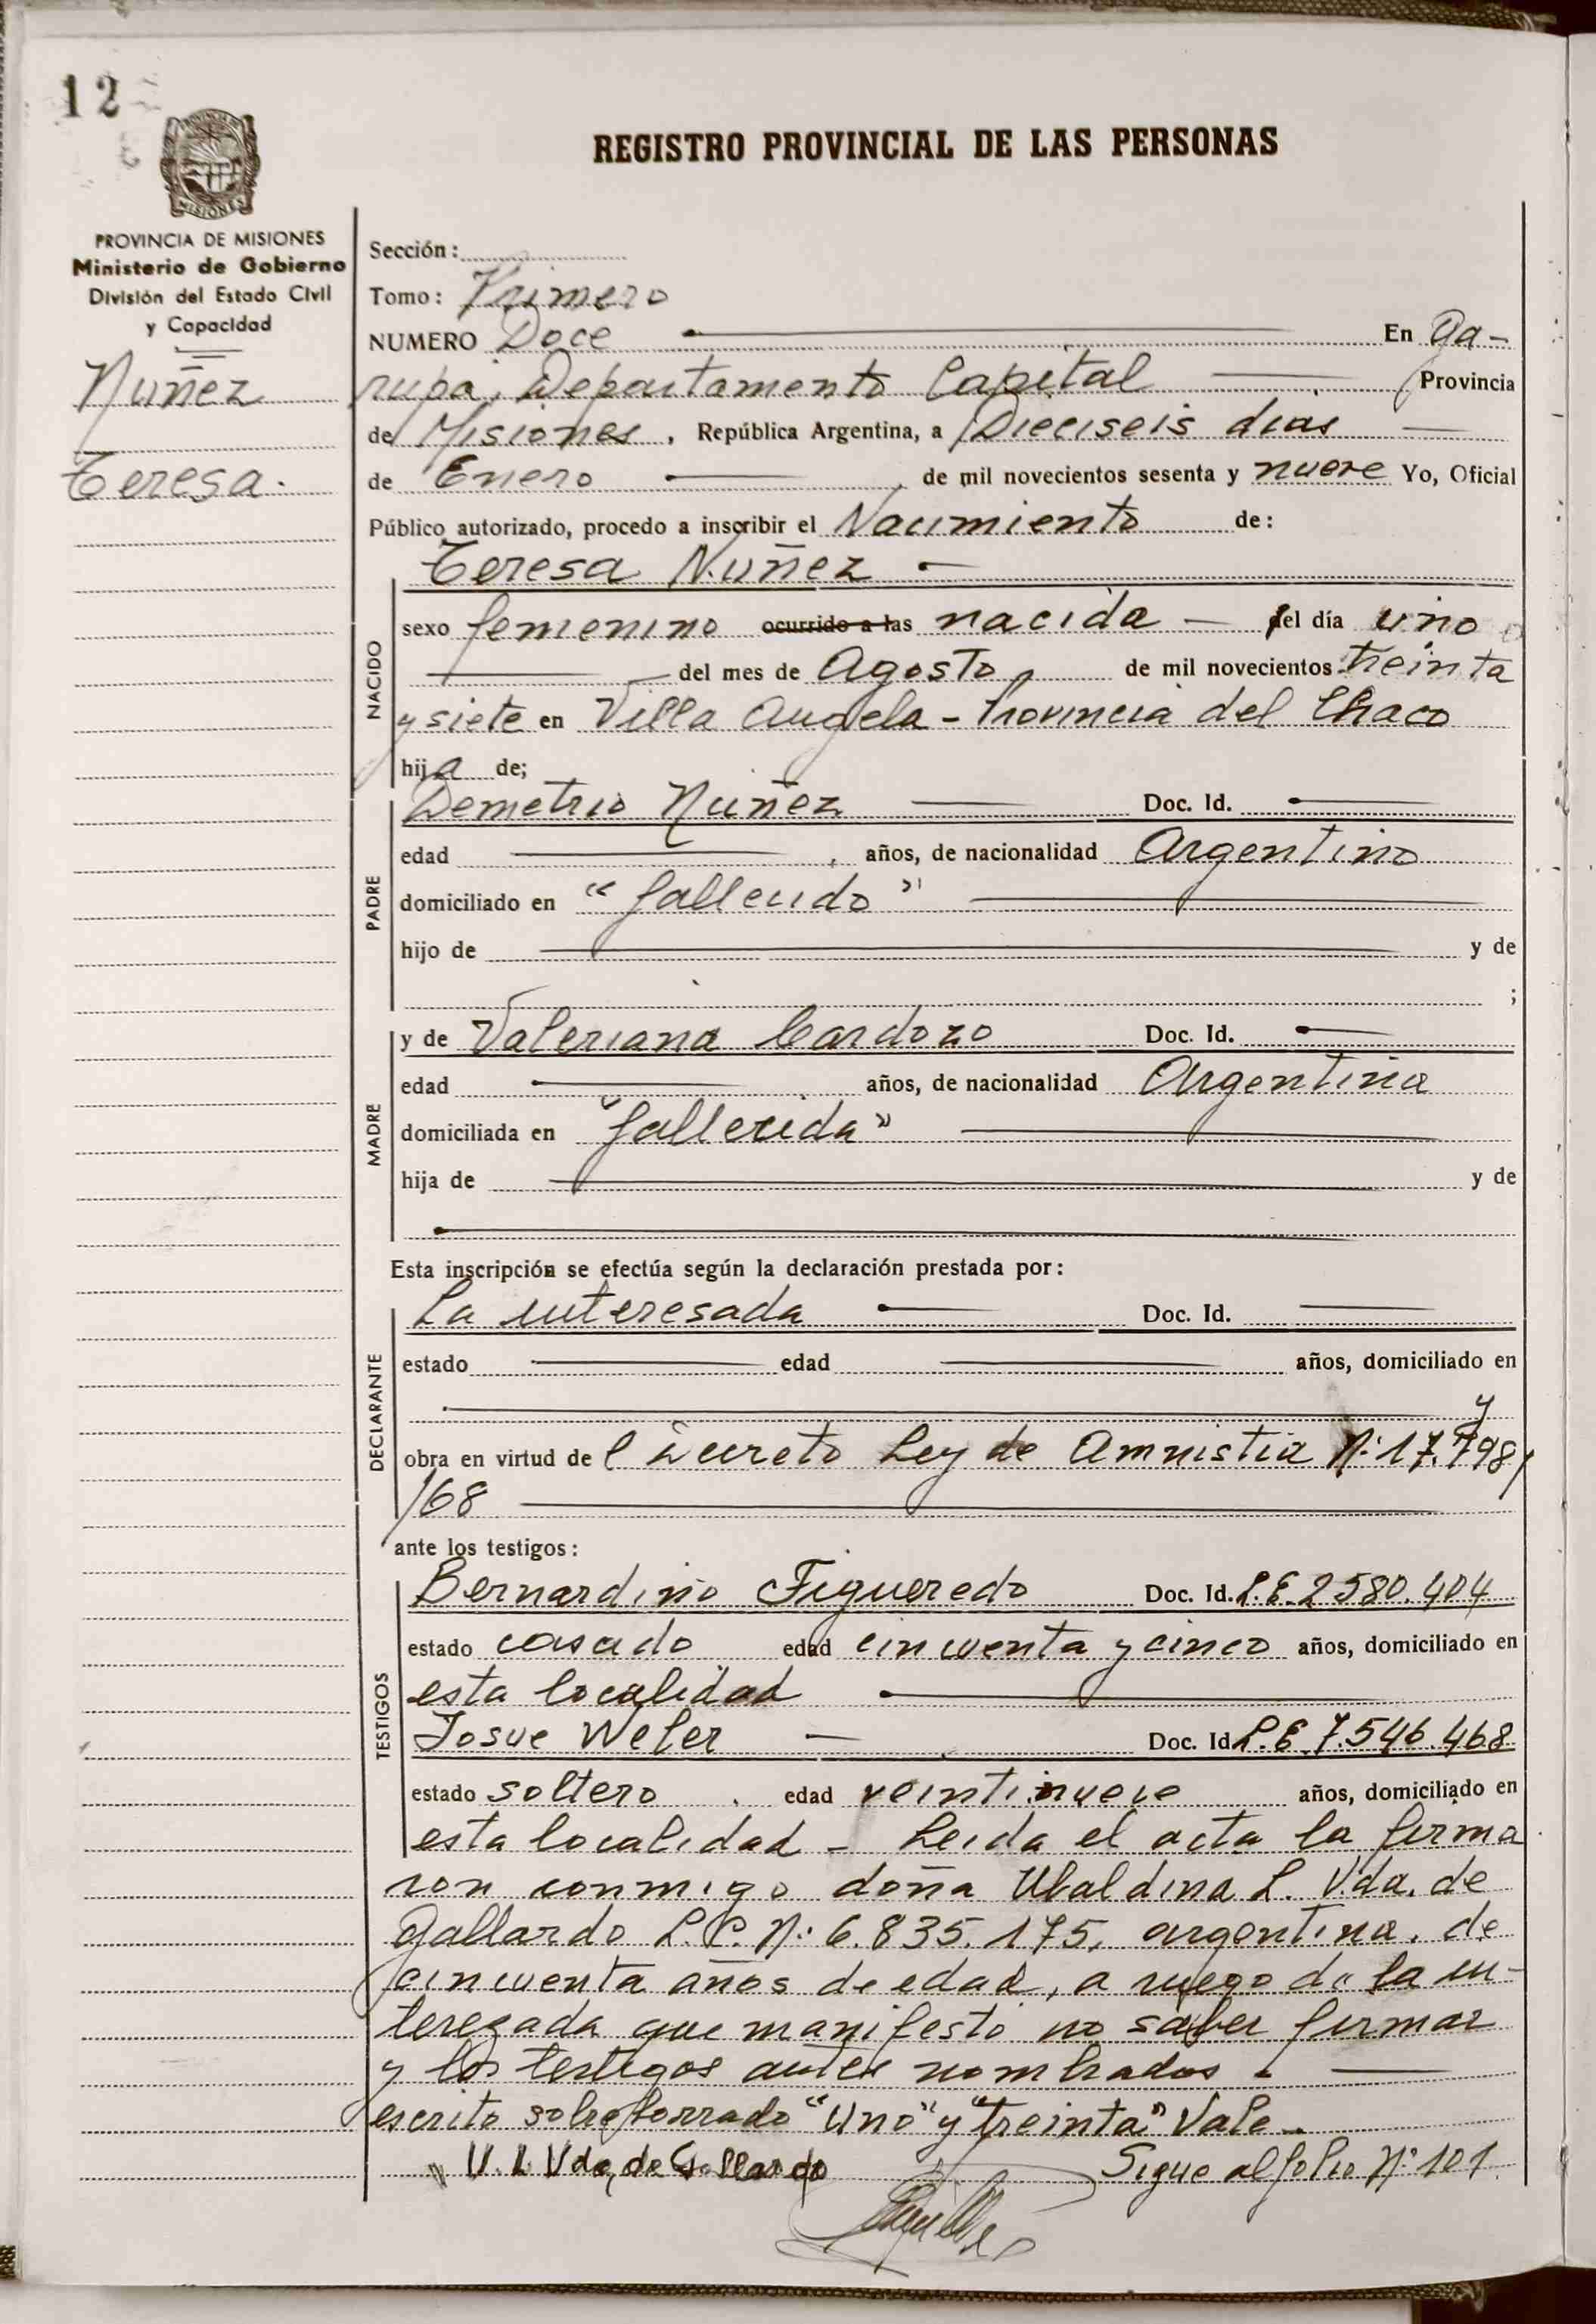 12
REGISTRO PROVINCIAL DE LAS PERSONAS
MISIONES
PROVINCIA DE MISIONES
Ministerio de Gobierno
División del Estado Civil
y Capacidad
Nuñez
Teresa.
Sección:
Tomo: Primero
NUMERO Doce En Ga-
rupa, Departamento Capital Provincia
de Misiones, República Argentina, a Dieciseis dias
de Enero de mil novecientos sesenta y nueve Yo, Oficial
Público autorizado, procedo a inscribir el Nacimiento de:
Teresa Nuñez -
NACIDO
sexo femenino ocurrido a las nacida - del día uno
del mes de Agosto de mil novecientos treinta
y siete en Villa Angela - Provincia del Chaco
hija de;
PADRE
Demetrio Nuñez Doc. Id.
edad , años, de nacionalidad Argentino
domiciliado en "fallecido"
hijo de y de
;
MADRE
y de Valeriana Cardozo Doc. Id.
edad años, de nacionalidad Argentina
domiciliada en "fallecida"
hija de y de
Esta inscripción se efectúa según la declaración prestada por:
DECLARANTE
La interesada Doc. Id.
estado edad años, domiciliado en
y
obra en virtud de l Decreto Ley de Amnistia Nº 17.798/
/68
ante los testigos:
TESTIGOS
Bernardino Figueredo Doc. Id. L.E. 2580.404
estado casado edad cincuenta y cinco años, domiciliado en
esta localidad
Josue Weler - Doc. Id. L.E 7.546.468
estado soltero edad veintinueve años, domiciliado en
esta localidad - Leida el acta la firma
ron conmigo doña Ubaldina L. Vda. de
Gallardo L.C. Nº 6.835.175, argentina, de
cincuenta años de edad, a ruego de la in-
terezada que manifesto no saber firmar
y los testigos antes nombrados -
escrito sobreborrado "uno" y "treinta" Vale -
U. L Vda, de Gallardo Sigue al folio Nº 101